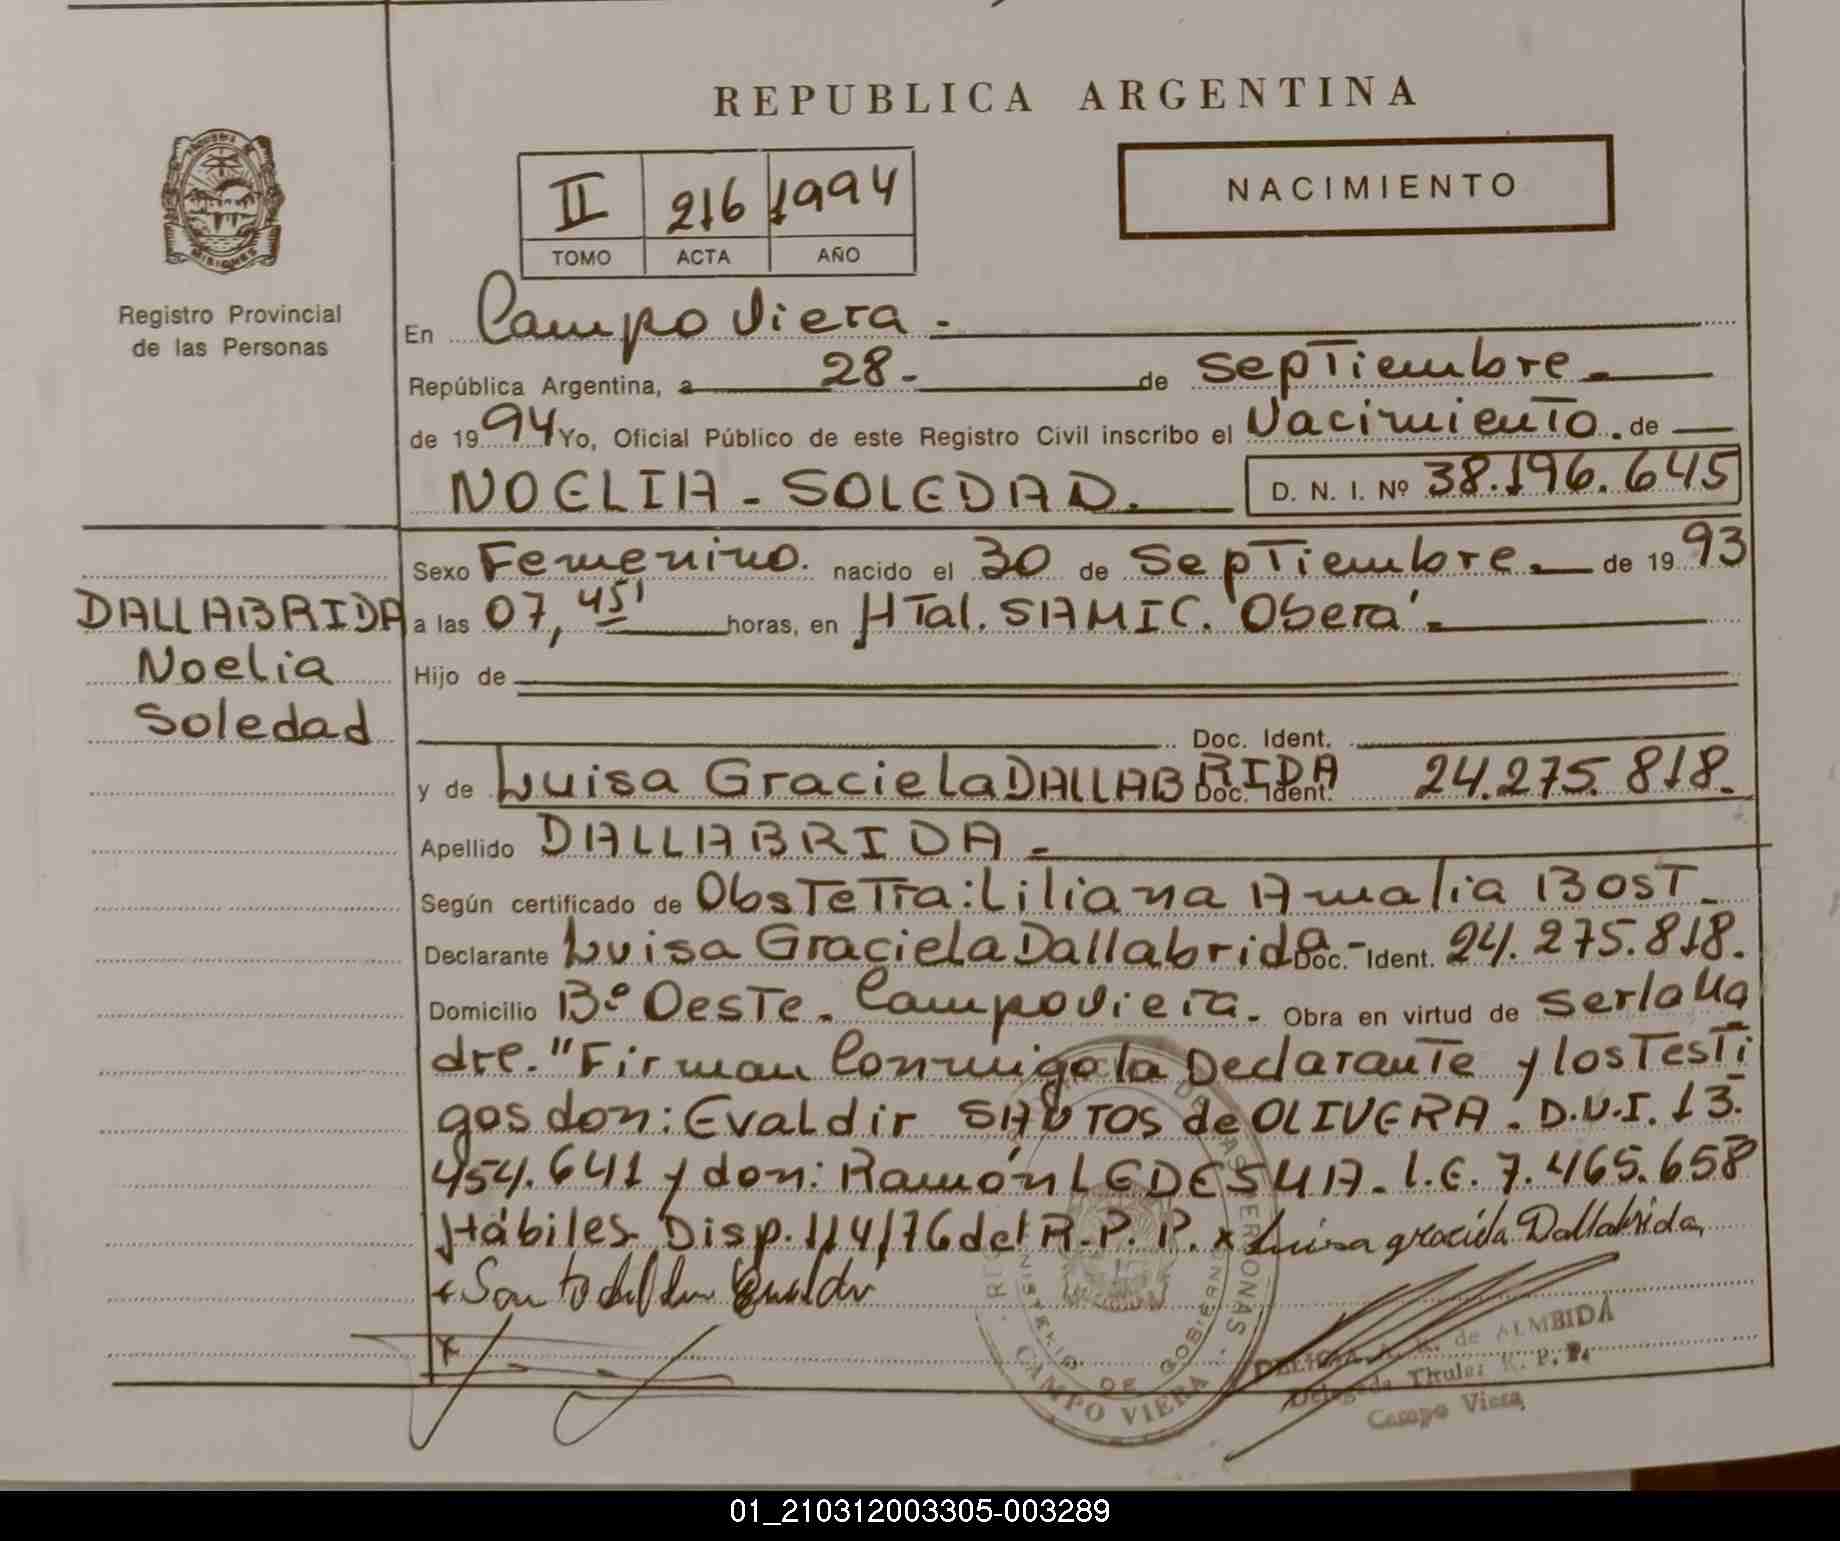 REPUBLICA ARGENTINA
NACIMIENTO
II 216 1994
TOMO ACTA AÑO
MISIONES
Registro Provincial
de las Personas
En Campo Viera.-
República Argentina, a 28- de Septiembre.-
de 1994 Yo, Oficial Público de este Registro Civil inscribo el Nacimiento. de
NOELIA - SOLEDAD. D. N. I. Nº 38.196.645
Sexo Femenino. nacido el 30 de Septiembre.- de 1993
DALLABRIDA
Noelia
Soledad
a las 07,45' horas, en HTal. SAMIC. Oberá.-
Hijo de
Doc. Ident.
y de Luisa Graciela DALLABRIDA Doc. Ident. 24.275.818.
Apellido DALLABRIDA.-
Según certificado de ObsTeTra: Liliana Amalia BOST.-
Declarante Luisa Graciela Dallabrida.- Doc. Ident. 24.275.818.
Domicilio Bº Oeste. Campo Viera. Obra en virtud de ser la Ma
dre." Firman Conmigo la Declarante y los Testi
gos don: Evaldir SANTOS de OLIVERA. D.N.I. 13.
454.641 y don: Ramón LEDESMA. L.E. 7.465.658
Hábiles Disp. 114/76 del R.P.P. x Luisa graciela Dallabrida
x
MINISTERIO DE GOBIERNO
CAMPO VIERA
DE LAS PERSONAS
A. R. de ALMEIDA
Delegada Titular R. P. P.
Campo Viera
01_210312003305-003289